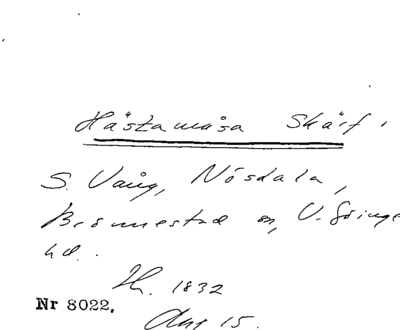 Hästamåsa Skärf.
S. Vång, Nösdala,
Brönnestad sn, V. Göinge
hd.
Th. 1832
Nr 8022.
Aug 15.